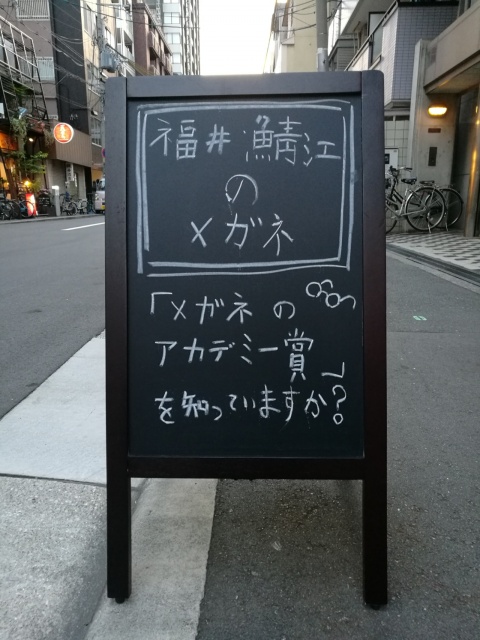 福井 鯖江
の
メガネ
「メガネの
アカデミー賞」
を知っていますか?